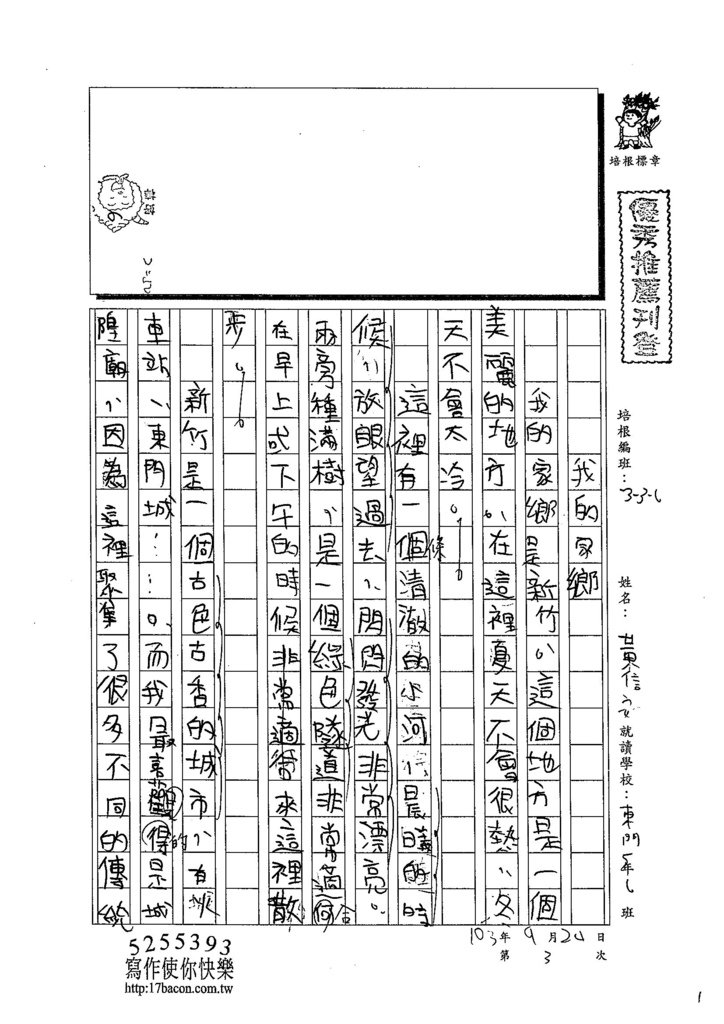 培根標章
優秀推薦刊登
培根編班：3-3-1
姓名：黃信
就讀學校：東門 5年 班
103年9月20日
第3次
我的家鄉
我的家鄉是新竹，這個地方是一個
美麗的地方，在這裡夏天不會很熱，冬
天不會太冷。
這裡有一個清澈的小河，晨曦的時
條
候，放眼望過去，閃閃發光非常漂亮。
兩旁種滿樹，是一個綠色隧道非常適何
合
在早上或下午的時候非常適合來這裡散
步。
新竹是一個古色古香的城市，有火
車站、東門城……。而我最喜觀得是城
的
隍廟，因為這裡聚集了很多不同的傳統
5255393
寫作使你快樂
http:17bacon.com.tw
1